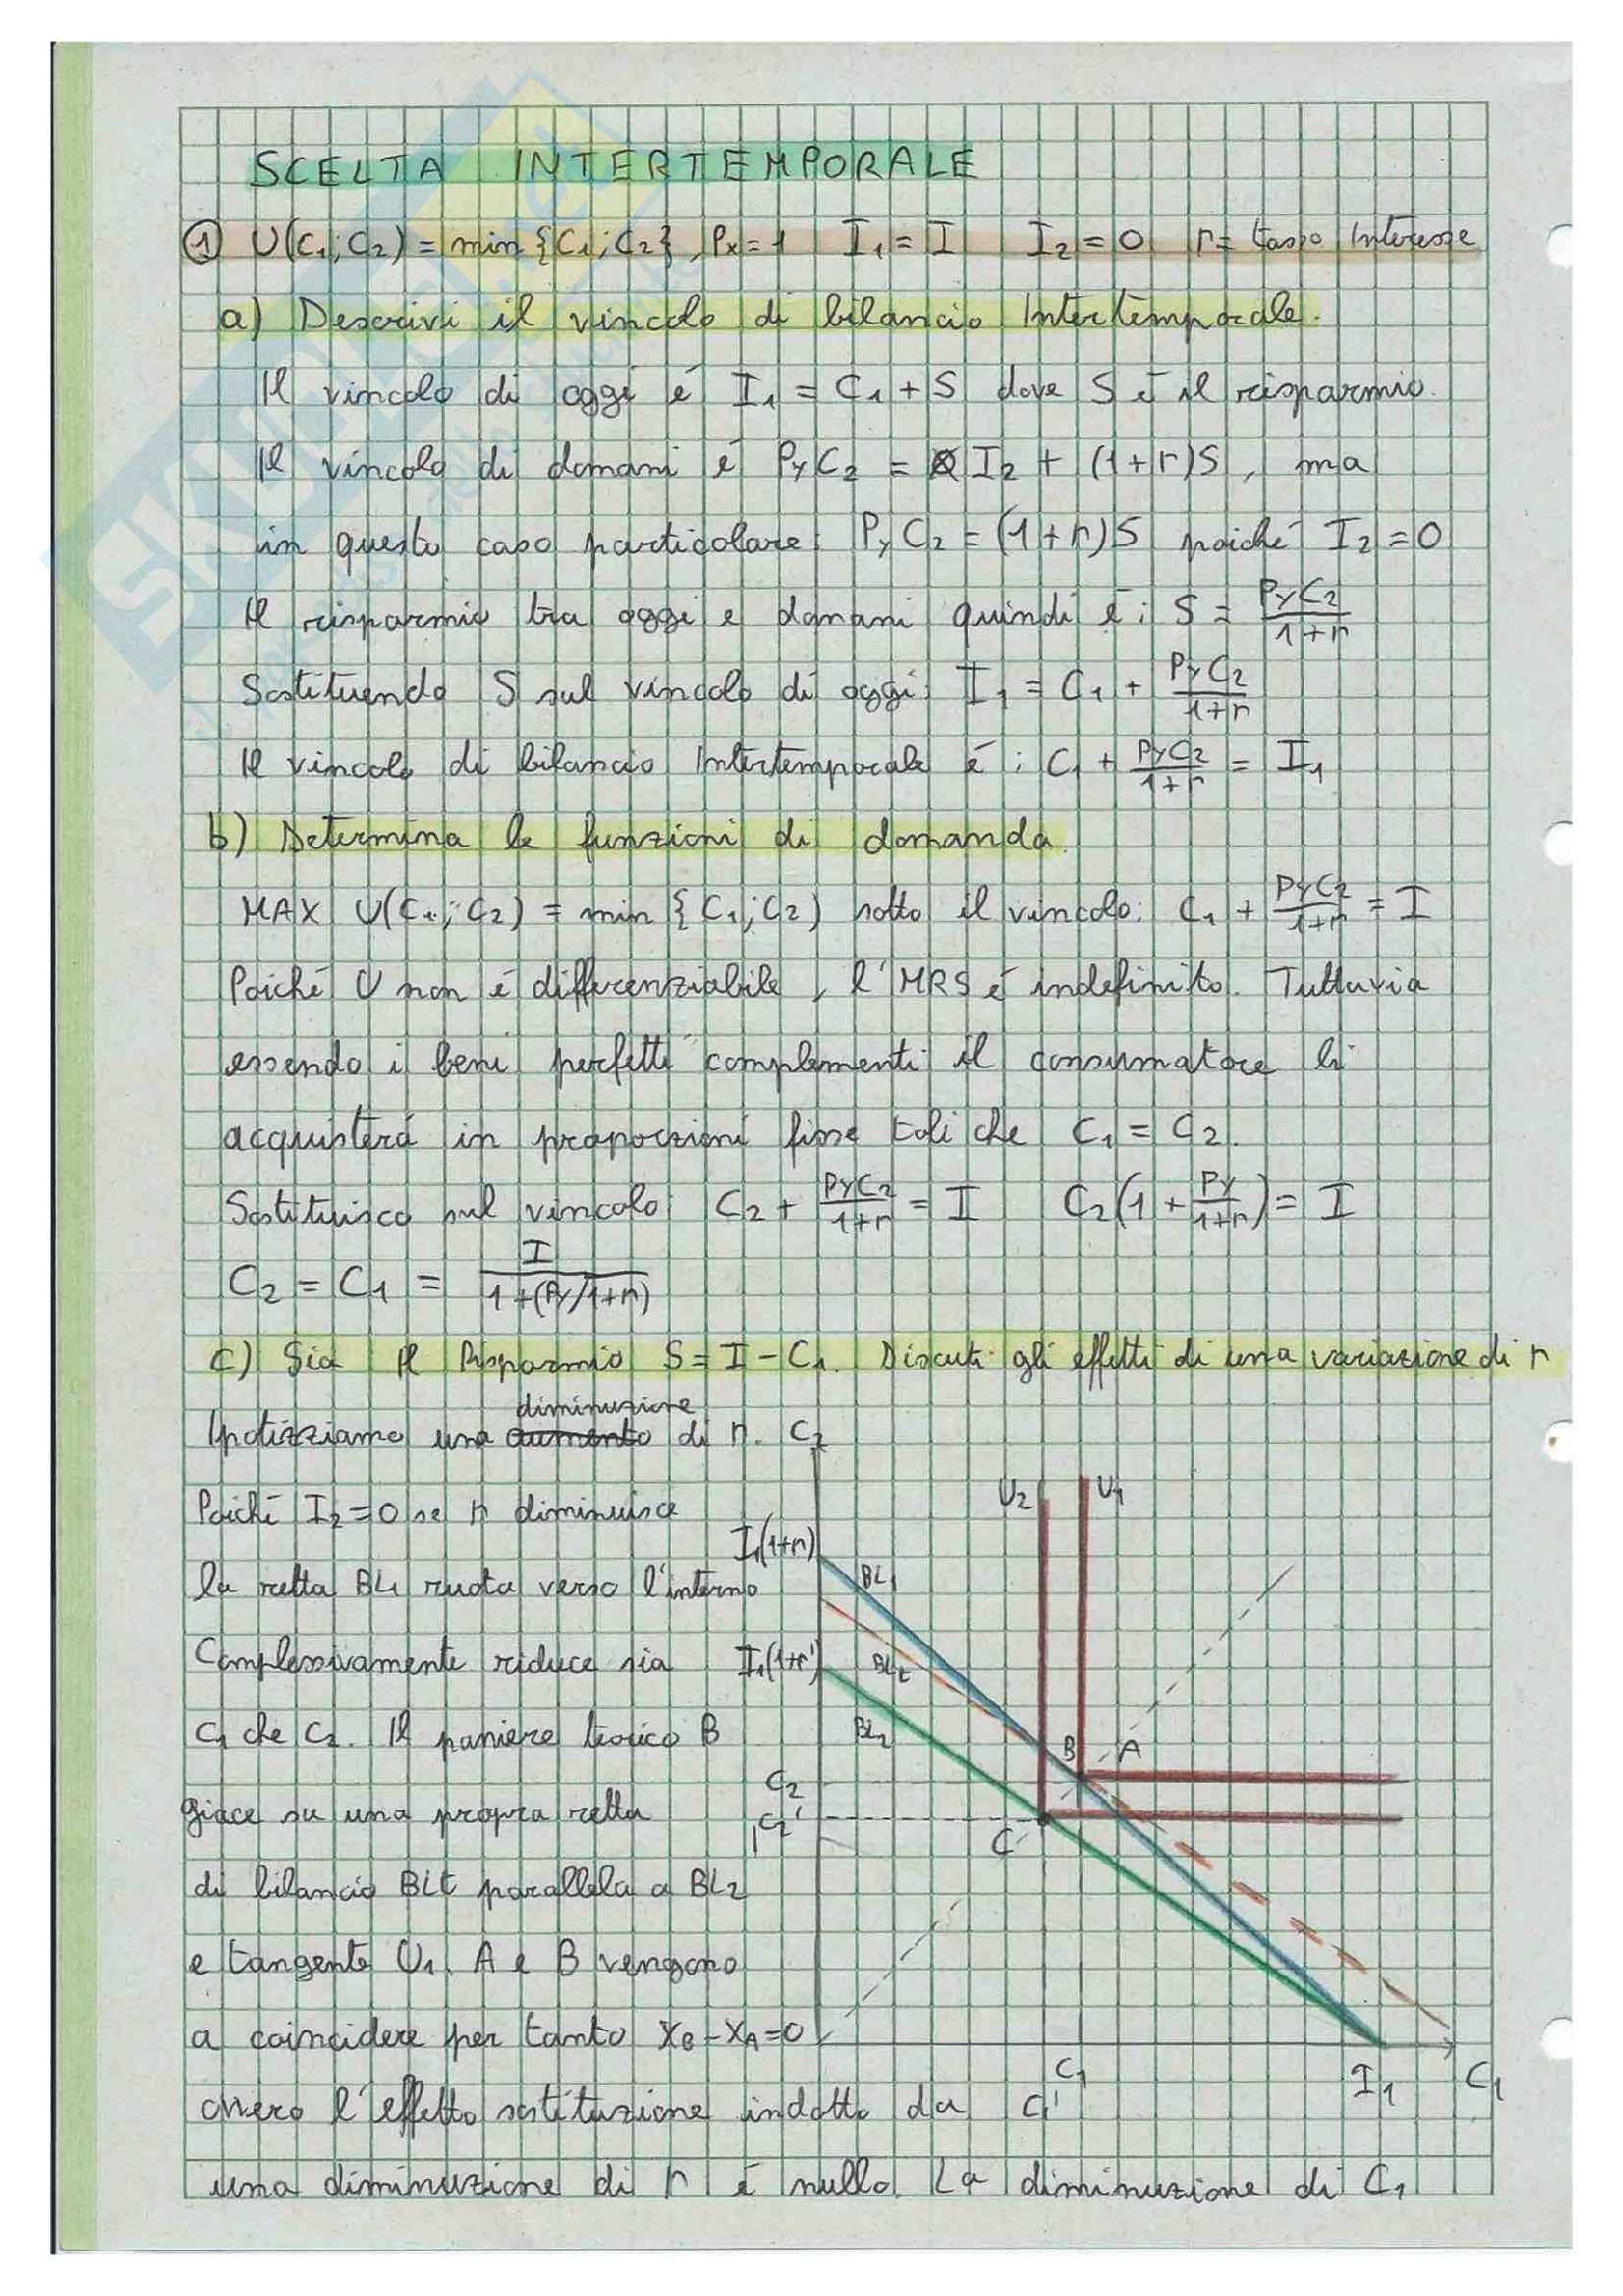 SCELTA INTERTEMPORALE
① U(C₁;C₂) = min {C₁;C₂}, Px=1 I₁=I I₂=0 r= tasso Interesse
a) Descrivi il vincolo di bilancio Intertemporale.
Il vincolo di oggi é I₁ = C₁ + S dove S é il risparmio.
Il vincolo di domani é PyC₂ = I₂ + (1+r)S, ma
in questo caso particolare: PyC₂ = (1+r)S poiché I₂=0
Il risparmio tra oggi e domani quindi é: S = PyC₂/1+r
Sostituendo S sul vincolo di oggi: I₁ = C₁ + PyC₂/1+r
Il vincolo di bilancio Intertemporale é: C₁ + PyC₂/1+r = I₁
b) Determina le funzioni di domanda.
MAX U(C₁;C₂) = min {C₁;C₂) sotto il vincolo: C₁ + PyC₂/1+r = I
Poiché U non é differenziabile, l'MRS é indefinito. Tuttavia
essendo i beni perfetti complementi il consumatore li
acquisterá in proporzioni fisse tali che C₁ = C₂.
Sostituisco sul vincolo C₂ + PyC₂/1+r = I C₂(1 + Py/1+r) = I
C₂ = C₁ = I/1+(Py/1+r)
c) Sia il Risparmio S = I - C₁. Discuti gli effetti di una variazione di r
Ipotizziamo una aumento diminuzione di r.
Poiché I₂=0 se r diminuisce
la retta BL₁ ruota verso l'interno
Complessivamente riduce sia
C₁ che C₂. Il paniere teorico B
giace su una propra retta
di bilancio BLt parallela a BL₂
e tangente U₁. A e B vengono
a coincidere per tanto XB-XA=0
ovvero l'effetto sostituzione indotto da
una diminuzione di r é nullo. La diminuzione di C₁
C₂
U₂ U₁
I₁(1+r)
BL₁
I₁(1+r')
BLt
BL₂
B A
C₂
C₂'
C
C₁
C₁'
I₁ C₁